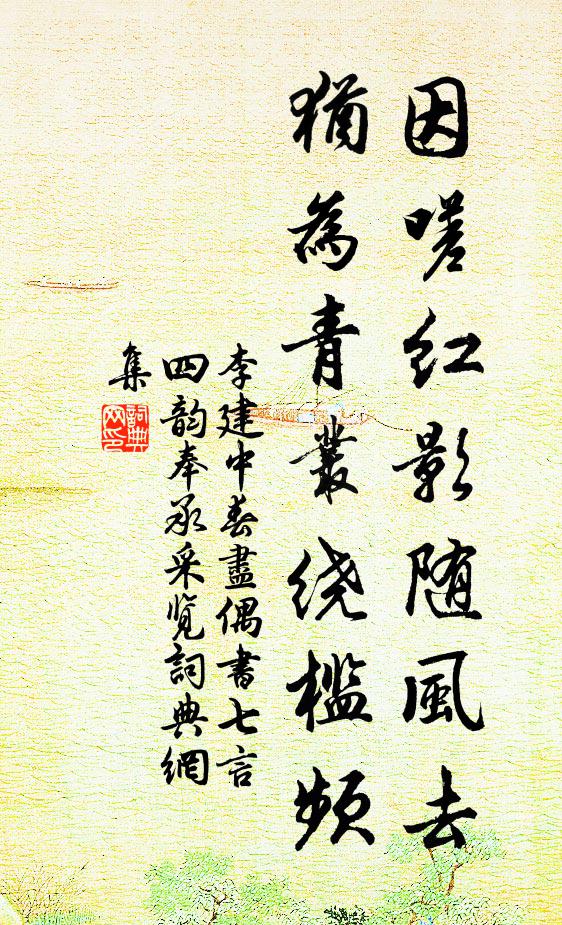 因嗟红影随風去
猶為青叢绕檻頻
李建中春盡偶書七言
四韵奉承采览詞典網
集
詞典網印